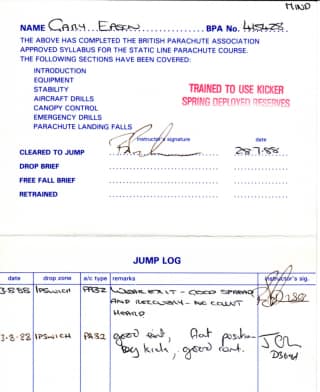 MIND
NAME GARY EASEN BPA No. 415428
THE ABOVE HAS COMPLETED THE BRITISH PARACHUTE ASSOCIATION
APPROVED SYLLABUS FOR THE STATIC LINE PARACHUTE COURSE.
THE FOLLOWING SECTIONS HAVE BEEN COVERED:
INTRODUCTION
EQUIPMENT
STABILITY
AIRCRAFT DRILLS
CANOPY CONTROL
EMERGENCY DRILLS
PARACHUTE LANDING FALLS
TRAINED TO USE KICKER
SPRING DEPLOYED RESERVES
Instructor's signature date
CLEARED TO JUMP 28.7.88
DROP BRIEF
FREE FALL BRIEF
RETRAINED
JUMP LOG
date drop zone a/c type remarks instructor's sig.
3.8.88 IPSWICH PA32 WEAK EXIT - GOOD SPREAD
AND RECOVERY - NO COUNT
HEARD
3-8-88 IPSWICH PA32 good exit, flat position
leg kick, good count.